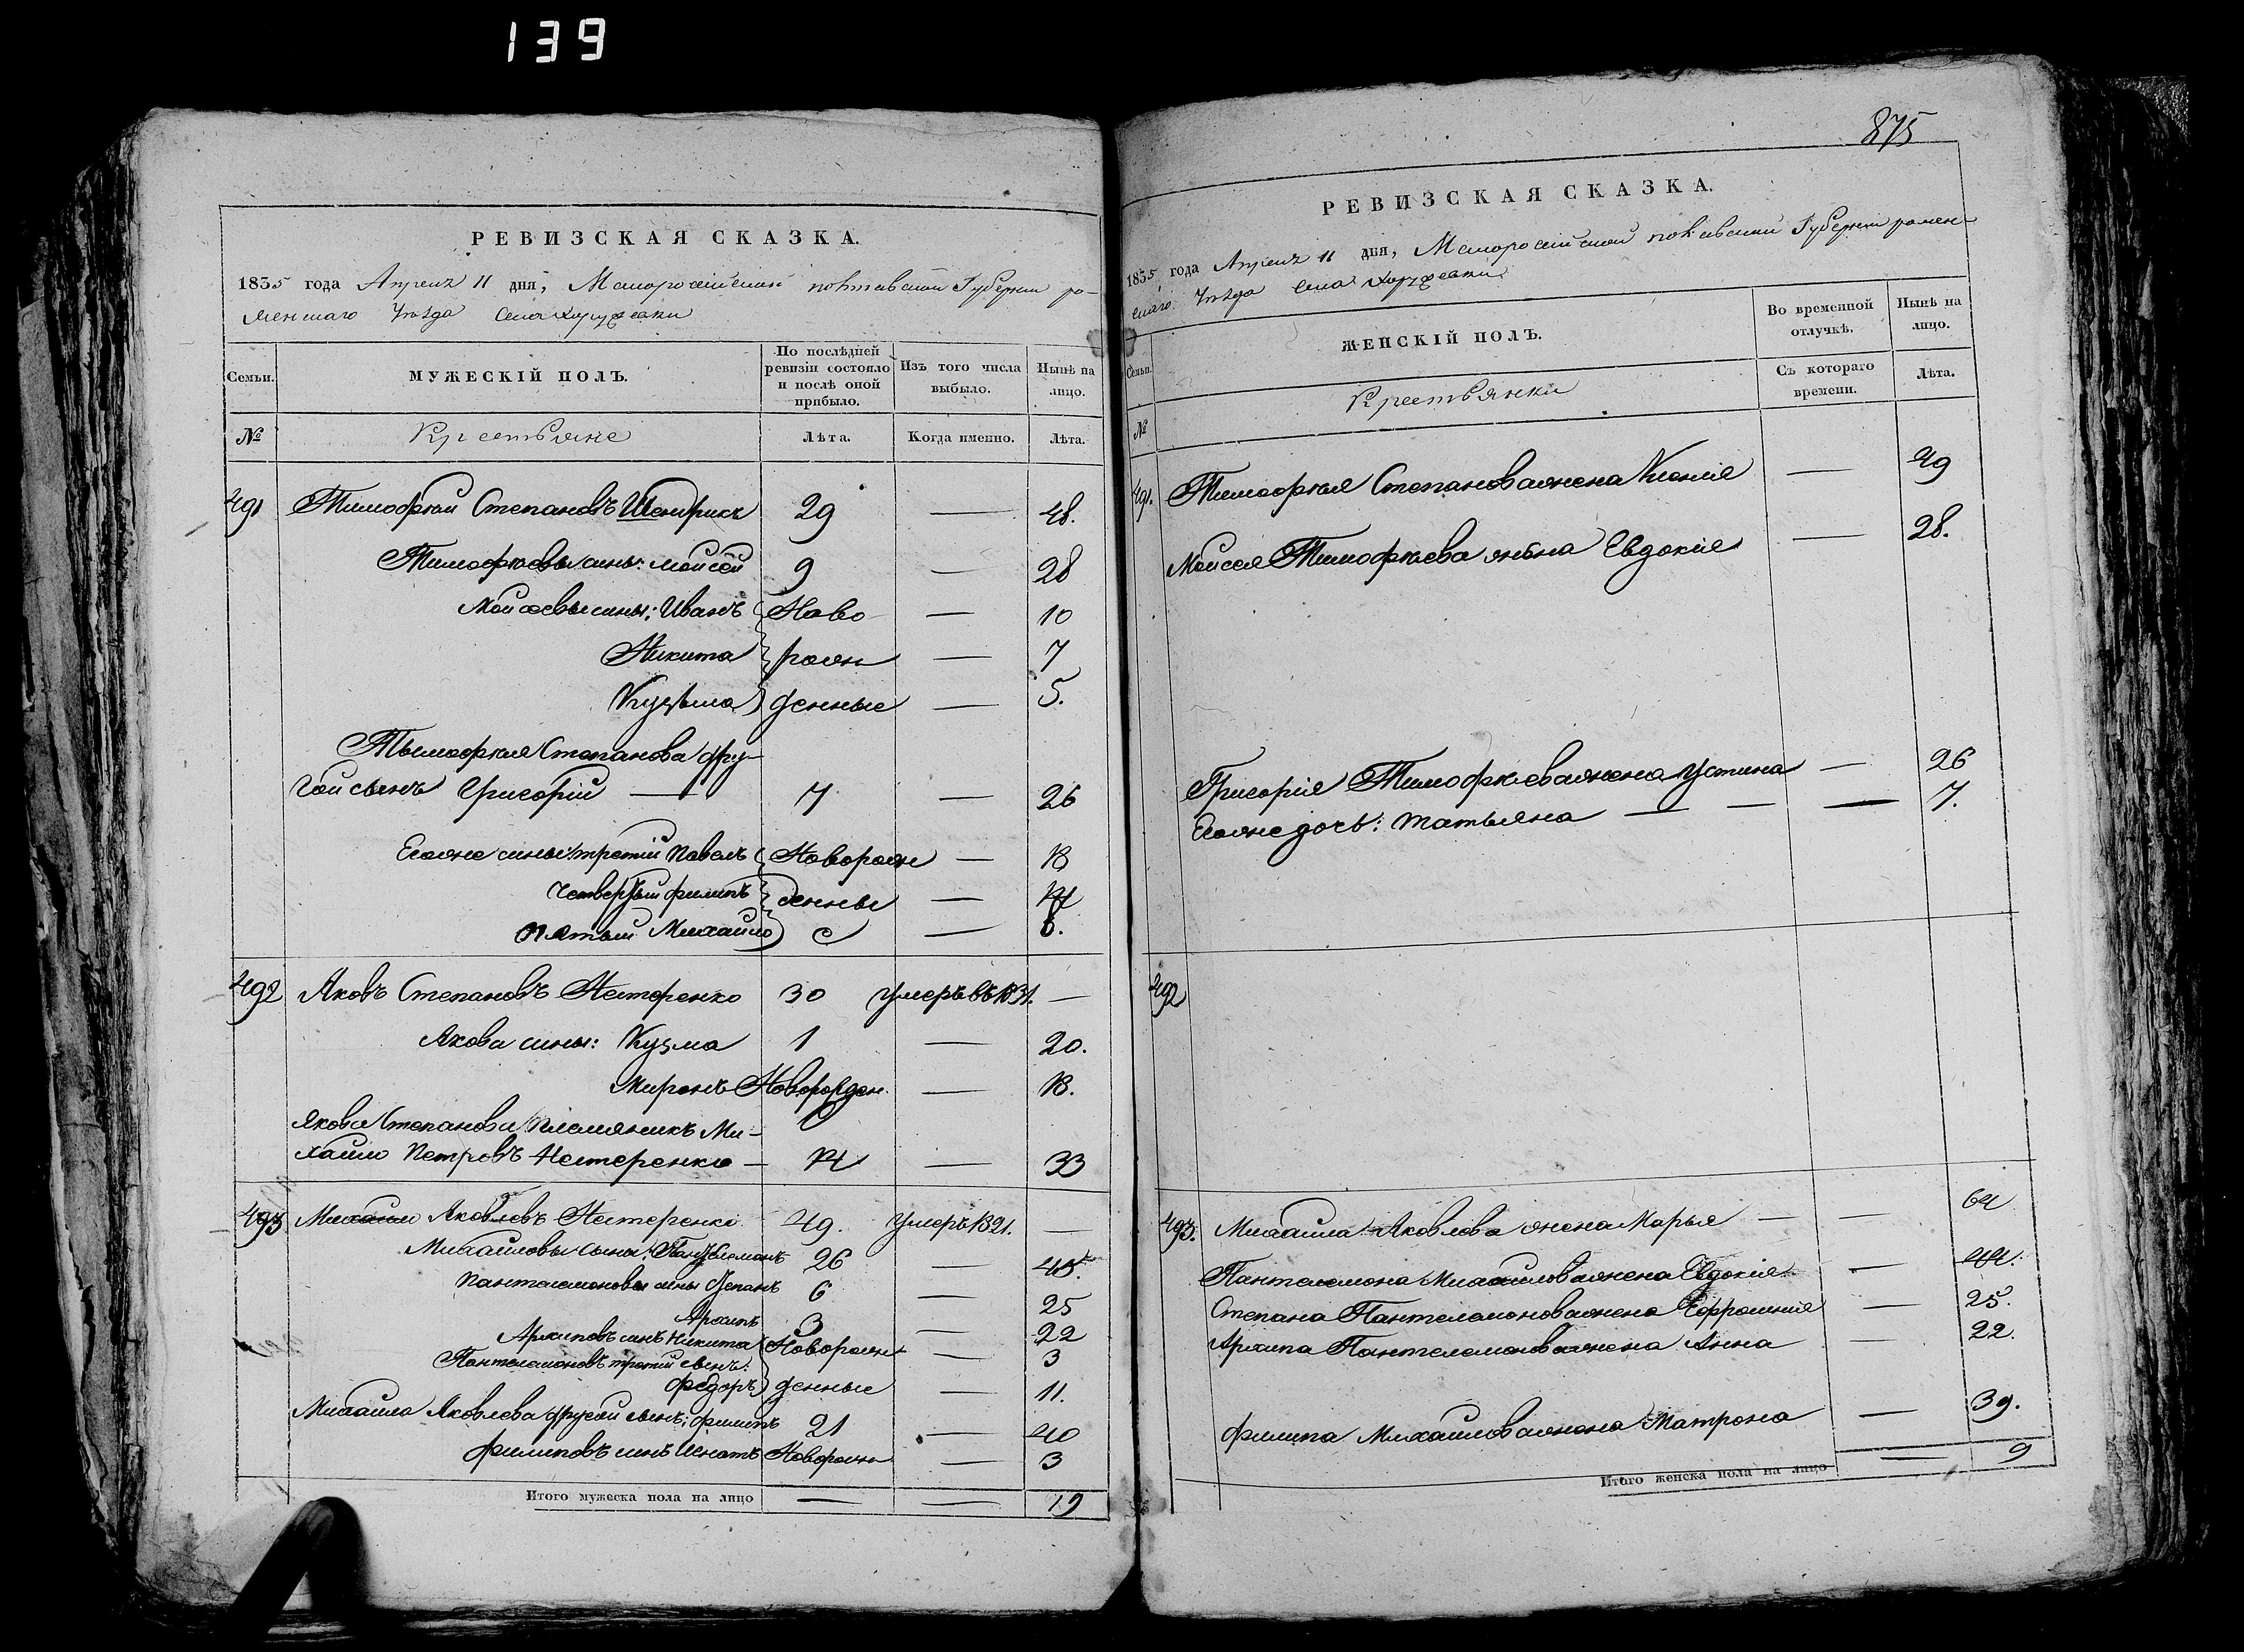 139
РЕВИЗСКАЯ СКАЗКА.
1835 года Апреля 11 дня, Малоросійской полтавской Губерніи ро-
менскаго Уѣзда Села Хоружевки
Семьи.
МУЖЕСКІЙ ПОЛЪ.
По послѣдней ревизіи состояло и послѣ оной прибыло.
Изъ того числа выбыло.
Нынѣ на лицо.
№ Крестьяне Лѣта. Когда именно. Лѣта.
491 Тимофѣй Степановъ Шендрикъ 29 — 48.
Тимофѣевы сины: Мойсей 9 — 28
Мойсеевы сины: Иванъ Ново — 10
Никита рожн — 7
Кузьма денные — 5.
Тымофѣя Степанова дру-
гой сынъ Григорій — 7 — 26
Егоже сины: третій Павелъ Новорожн — 18
Четвертый Филипъ денны — 14
Пятый Михайло е — 8.
492 Яковъ Степановъ Нестеренко 30 умеръ въ 1831. —
Якова сины: Кузма 1 — 20.
Миронъ Новорожден. — 18.
Якова Степанова племяникъ Ми-
хайло Петровъ Нестеренко — 14 — 33
493 Михайло Яковлевъ Нестеренко 49. умеръ 1821. —
Михайловы сины: Пантелемонъ 26 — 45.
Пантелемоновы сины Степанъ 6 — 25
Архипъ 3 — 22
Архиповъ синъ Никита Новорожн — 3
Пантелемоновъ третій сынъ:
Федоръ денные — 11.
Михайла Яковлева другой сынъ: Филипъ 21 — 40
Филиповъ синъ Игнатъ Новорожн — 3
Итого мужеска пола на лицо 19
875
РЕВИЗСКАЯ СКАЗКА.
1835 года Апреля 11 дня, Малоросійской полтавской Губерніи ромен-
скаго Уѣзда Села Хоружевки
Семьи.
ЖЕНСКІЙ ПОЛЪ.
Во временной отлучкѣ.
Нынѣ на лицо.
Съ котораго времени.
Лѣта.
№ Крестьянки
491. Тимофѣя Степанова жена Ксенія — 49
Мойсея Тимофѣева жена Евдокія — 28.
Григорія Тимофѣева жена Устина — 26
Егоже дочь: Татьяна — — — 7.
492
493. Михайла Яковлева жена Марья — — 64
Пантелемона Михайлова жена Евдокія — 44.
Степана Пантелемонова жена Ефросинія — 25.
Архипа Пантелемонова жена Анна — 22.
Филипа Михайлова жена Матрона — 39.
Итого женска пола на лицо 9